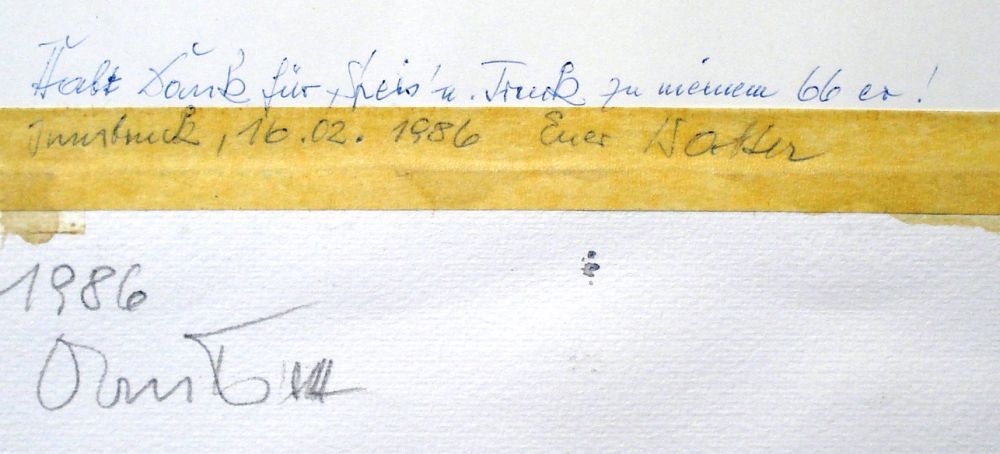 Habt Dank für Speis' u. Trunk zu meinem 66 er!
Innsbruck, 16.02.1986 Euer
1986